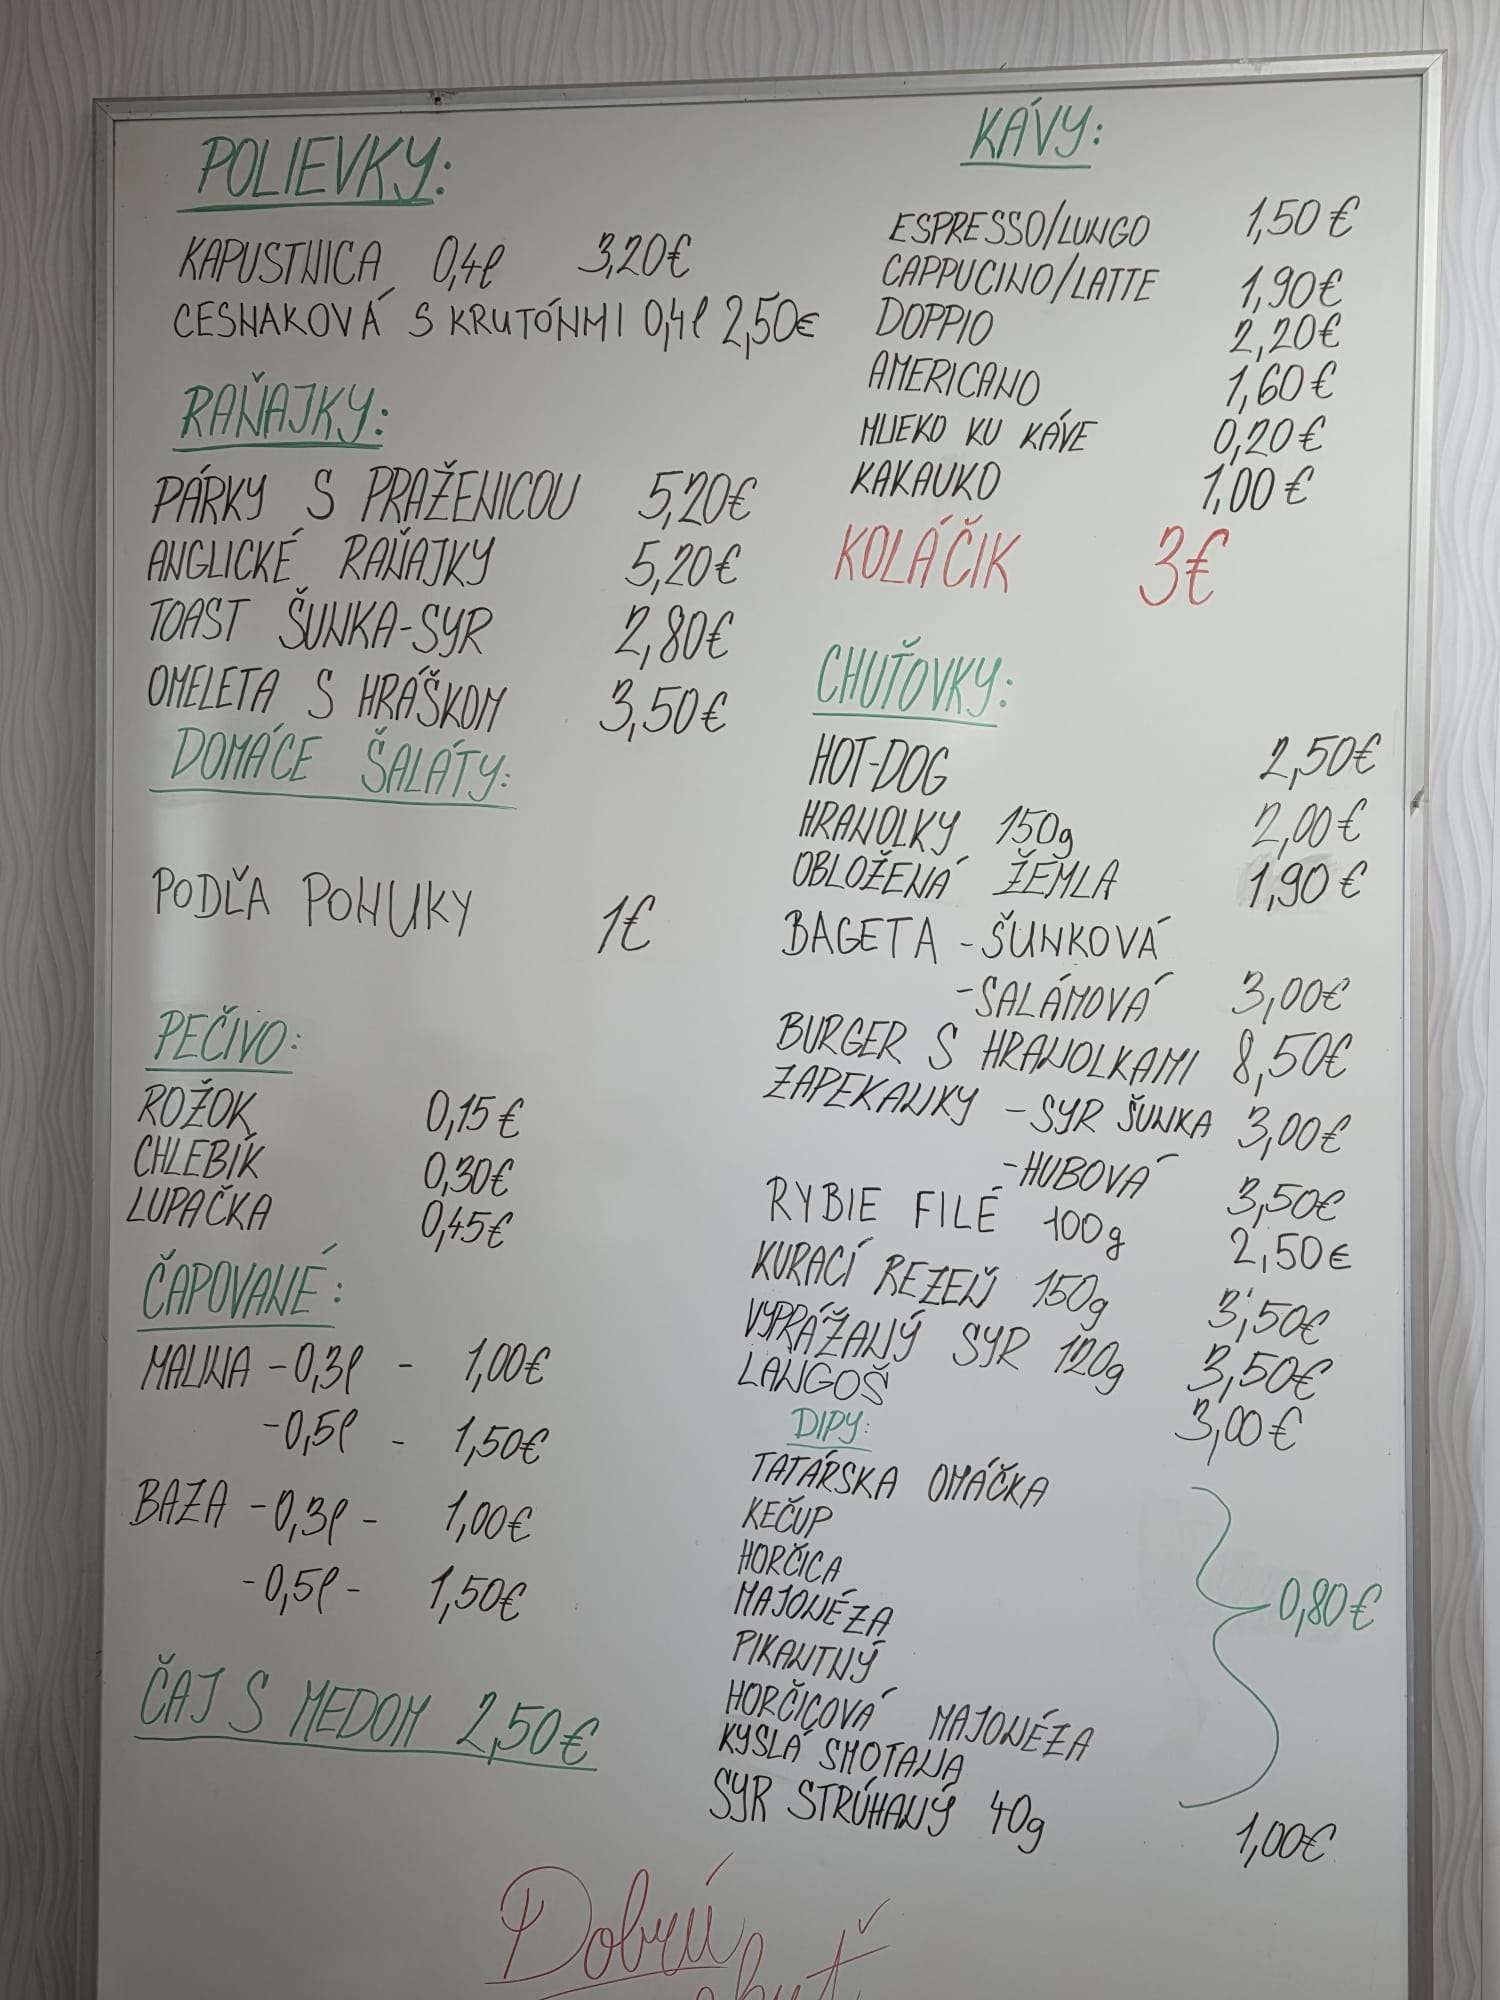 POLIEVKY:
KAPUSTNICA 0,4l 3,20€
CESNAKOVÁ S KRUTÓNMI 0,4l 2,50€
RAŇAJKY:
PÁRKY S PRAŽENICOU 5,20€
ANGLICKÉ RAŇAJKY 5,20€
TOAST ŠUNKA-SYR 2,80€
OMELETA S HRÁŠKOM 3,50€
DOMÁCE ŠALÁTY:
PODĽA PONUKY 1€
PEČIVO:
ROŽOK 0,15€
CHLEBÍK 0,30€
LUPAČKA 0,45€
ČAPOVANÉ:
MALINA -0,3l - 1,00€
-0,5l - 1,50€
BAZA -0,3l - 1,00€
-0,5l - 1,50€
ČAJ S MEDOM 2,50€
KÁVY:
ESPRESSO/LUNGO 1,50€
CAPPUCINO/LATTE 1,90€
DOPPIO 2,20€
AMERICANO 1,60€
MLIEKO KU KÁVE 0,20€
KAKAUKO 1,00€
KOLÁČIK 3€
CHUŤOVKY:
HOT-DOG 2,50€
HRANOLKY 150g 2,00€
OBLOŽENÁ ŽEMLA 1,90€
BAGETA -ŠUNKOVÁ
-SALÁMOVÁ 3,00€
BURGER S HRANOLKAMI 8,50€
ZAPEKANKY -SYR ŠUNKA 3,00€
-HUBOVÁ 3,50€
RYBIE FILÉ 100g 2,50€
KURACÍ REZEŇ 150g 3,50€
VYPRÁŽANÝ SYR 120g 3,50€
LANGOŠ 3,00€
DIPY:
TATÁRSKA OMÁČKA
KEČUP
HORČICA
MAJONÉZA
PIKANTNÝ
HORČICOVÁ MAJONÉZA
KYSLÁ SMOTANA
0,80€
SYR STRÚHANÝ 40g 1,00€
Dobrú
chuť